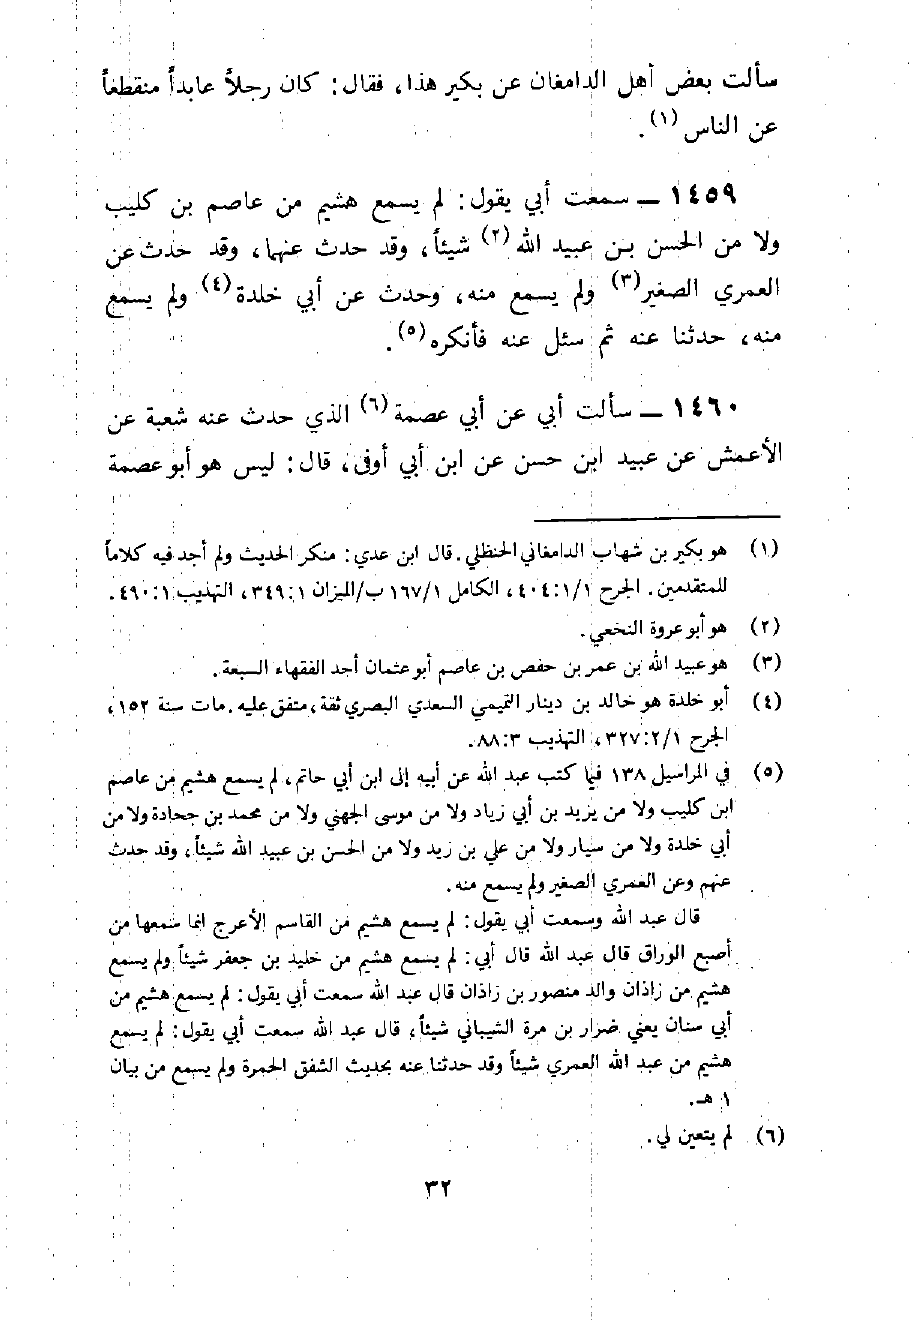 سألت بعض أهل الدامغان عن بكير هذا، فقال: كان رجلاً عابداً منقطعاً
عن الناس (١).
١٤٥٩ ـ سمعت أبي يقول: لم يسمع هشيم من عاصم بن كليب
ولا من الحسن بن عبيد الله (٢) شيئاً، وقد حدث عنهما، وقد حدث عن
العمري الصغير(٣) ولم يسمع منه، وحدث عن أبي خلدة(٤) ولم يسمع
منه، حدثنا عنه ثم سئل عنه فأنكره(٥).
١٤٦٠ ـ سألت أبي عن أبي عصمة(٦) الذي حدث عنه شعبة عن
الأعمش عن عبيد ابن حسن عن ابن أبي أوفى، قال: ليس هو أبو عصمة
(١) هو بكير بن شهاب الدامغاني الحنظلي. قال ابن عدي: منكر الحديث ولم أجد فيه كلاماً
للمتقدمين. الجرح ١/١:٤٠٤، الكامل ١٦٧/١ ب/الميزان ١:٣٤٩، التهذيب ١:٤٩٠.
(٢) هو أبو عروة النخعي.
(٣) هو عبيد الله بن عمر بن حفص بن عاصم أبو عثمان أحد الفقهاء السبعة.
(٤) أبو خلدة هو خالد بن دينار التميمي السعدي البصري ثقة، متفق عليه. مات سنة ١٥٢،
الجرح ٣٢٧:٢/١، التهذيب ٨٨:٣.
(٥) في المراسيل ١٣٨ فيما كتب عبد الله عن أبيه إلى ابن أبي حاتم، لم يسمع هشيم من عاصم
ابن كليب ولا من يزيد بن أبي زياد ولا من موسى الجهني ولا من محمد بن جحادة ولا من
أبي خلدة ولا من سيار ولا من علي بن زيد ولا من الحسن بن عبيد الله شيئاً، وقد حدث
عنهم وعن العمري الصغير ولم يسمع منه.
قال عبد الله وسمعت أبي يقول: لم يسمع هشيم من القاسم الأعرج انما سمعها من
أصبع الوراق قال عبد الله قال أبي: لم يسمع هشيم من خليد بن جعفر شيئاً ولم يسمع
هشيم من زاذان والد منصور بن زاذان قال عبد الله سمعت أبي يقول: لم يسمع هشيم من
أبي سنان يعني ضرار بن مرة الشيباني شيئاً، قال عبد الله سمعت أبي يقول: لم يسمع
هشيم من عبد الله العمري شيئاً وقد حدثنا عنه بحديث الشفق الحمرة ولم يسمع من بيان
١ هـ.
(٦) لم يتعين لي.
٣٢